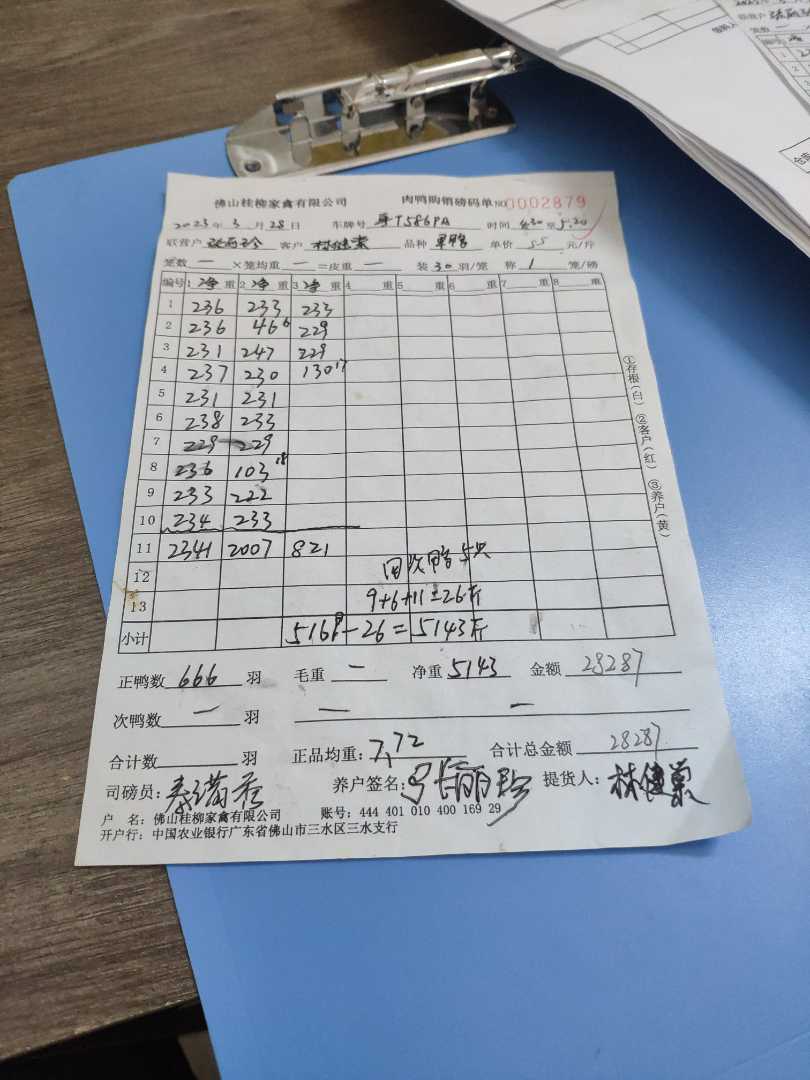 佛山桂柳家禽有限公司 肉鸭购销磅码单 NO 0002879
2023年 3 月 28 日 车牌号 粤T586PA 时间 至5.20
联营户 张丽珍 客户 林健巢 品种 单价 5.5 元/斤
笼数 一 ×笼均重 一 =皮重 一 装 30 羽/笼 称 1 笼/磅
编号 1 净 重 2 净 重 3 净 重 4 重 5 重 6 重 7 重 8 重
1 236 233 233
2 236 46 6 229
3 231 247 229
4 237 230 130 17
5 231 231
6 238 233
7 229 229
8 236 103 18
9 233 222
10 234 233
11 2341 2007 821
12 回次鸭5只
13 9+6+11=26斤
小计 5169-26=5143斤
正鸭数 666 羽 毛重 一 净重 5143 金额 28287
次鸭数 一 羽 一 一
合计数 羽 正品均重: 7.72 合计总金额 28287
司磅员: 养户签名: 张丽珍 提货人: 林健巢
户 名: 佛山桂柳家禽有限公司 账号: 444 401 010 400 169 29
开户行: 中国农业银行广东省佛山市三水区三水支行
①存根(白) ②客户(红) ③养户(黄)